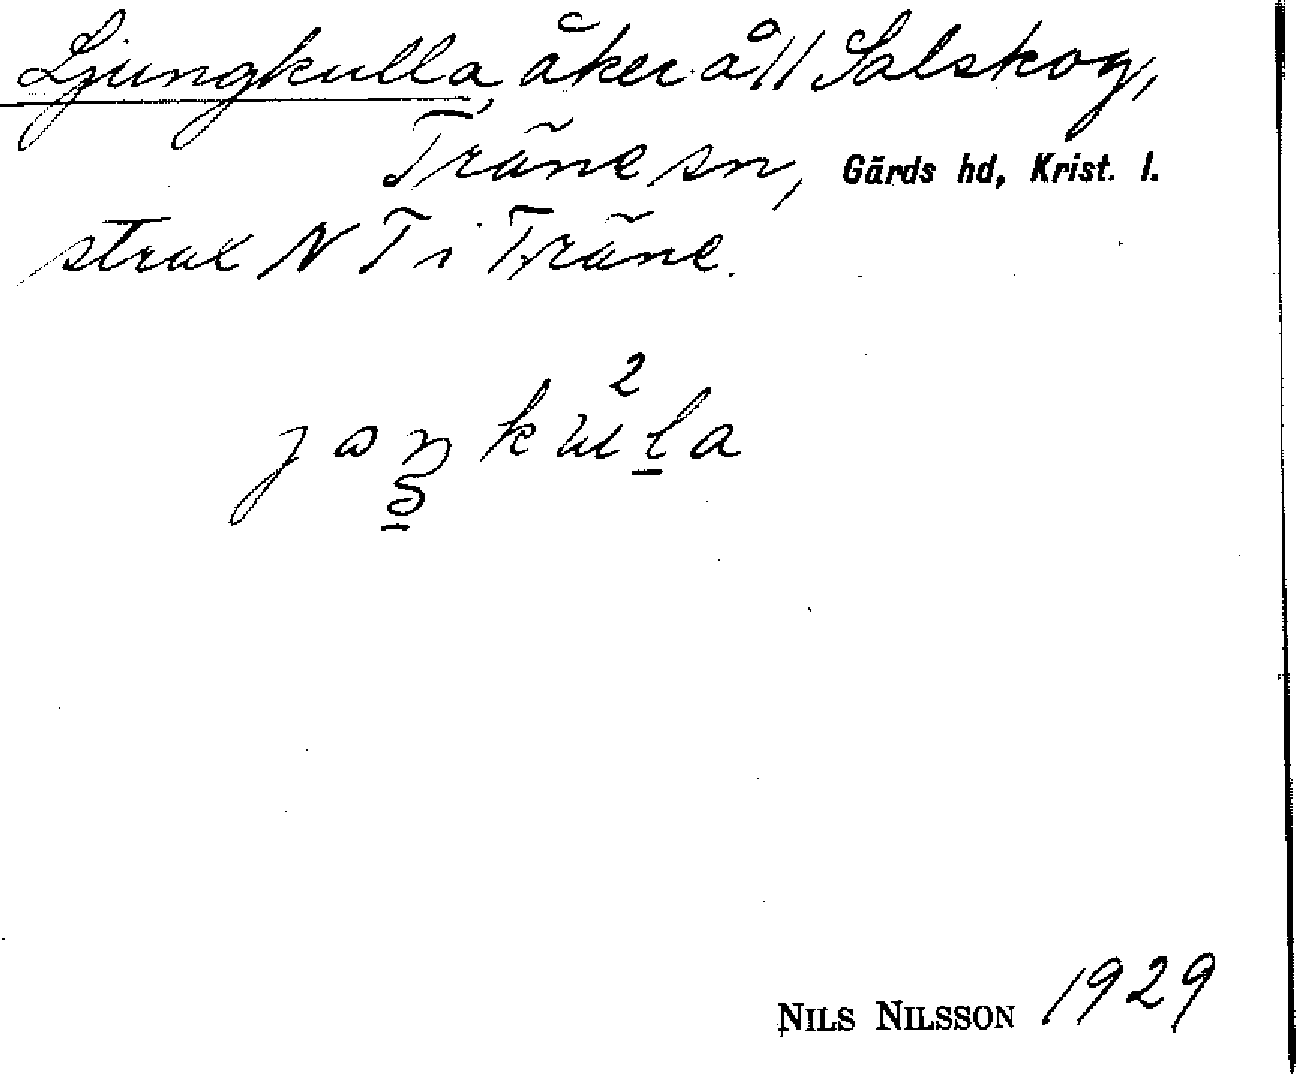 Ljungkulla, åker å 11 Salskog,
Träne sn, Gärds hd, Krist. l.
strax N T i Träne.
NILS NILSSON 1929